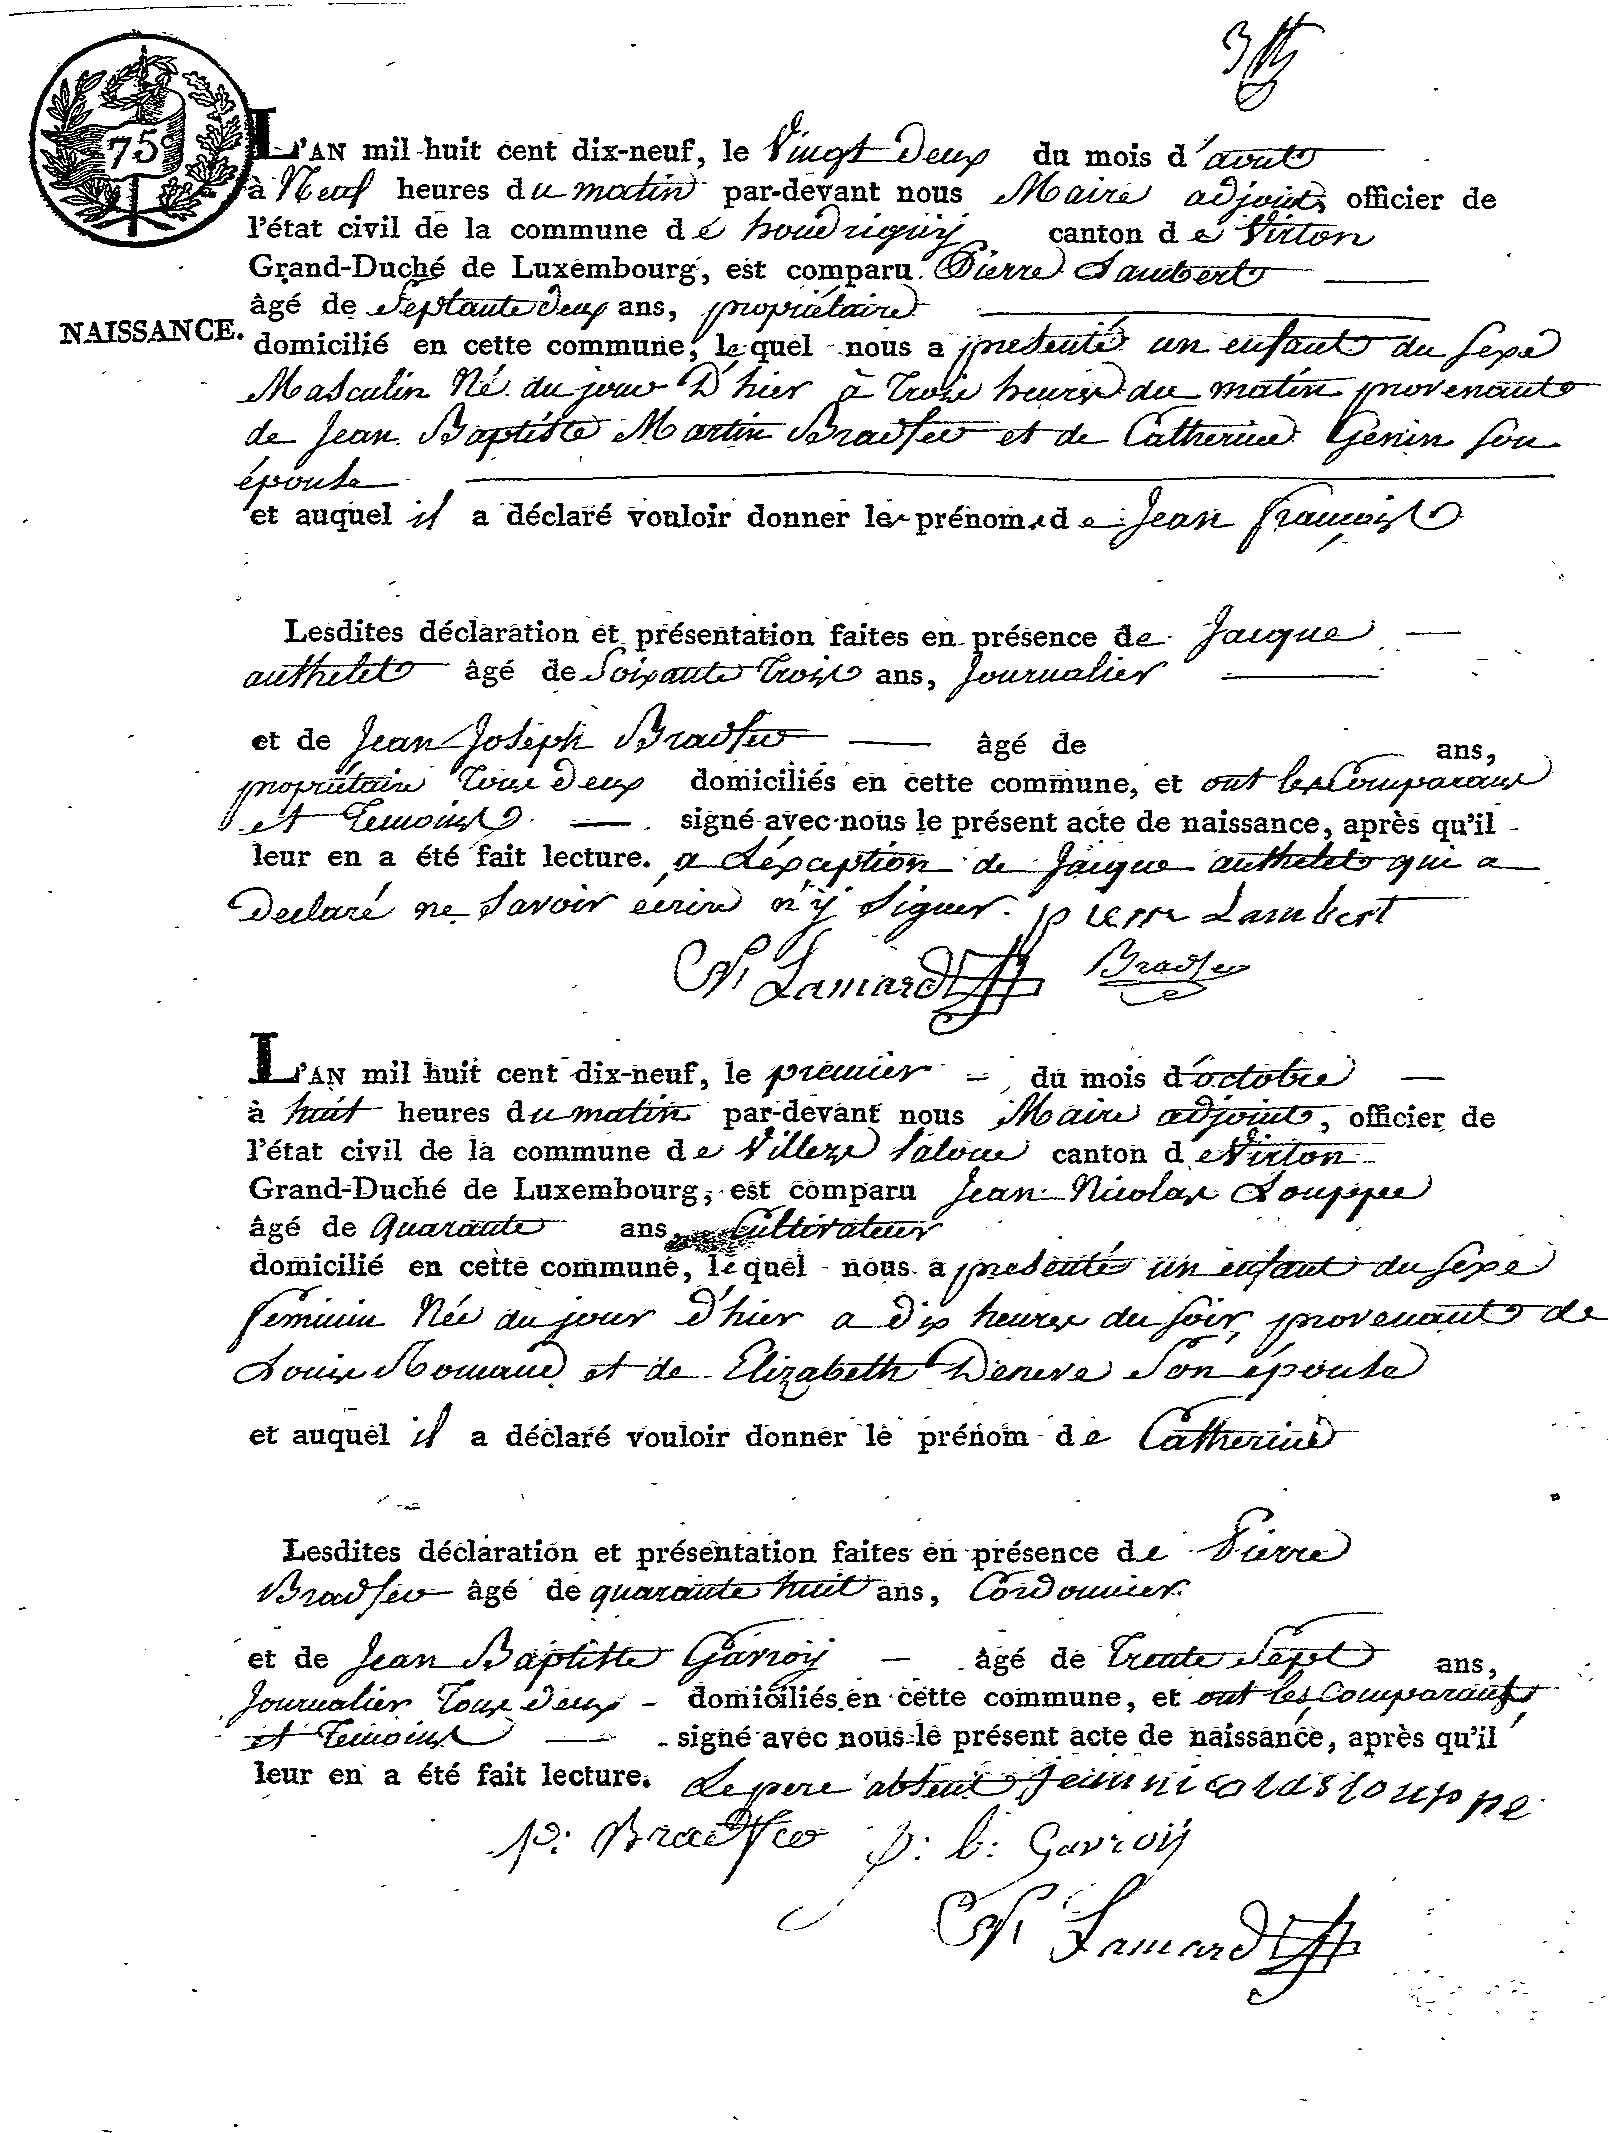 75c
L'AN mil huit cent dix-neuf, le Vingt Deux du mois d'aout
à Neuf heures du matin par-devant nous Maire adjoint, officier de
l'état civil de la commune de houdrigny canton de Virton
Grand-Duché de Luxembourg, est comparu Pierre Lambert
âgé de Septante deux ans, propriétaire
NAISSANCE.
domicilié en cette commune, lequel nous a presenté un enfant du sexe
Masculin Né du jour D'hier à trois heures du matin provenant
de Jean Baptiste Martin Bradfer et de Catherine Genin son
épouse
et auquel il a déclaré vouloir donner les prénoms de Jean françois
Lesdites déclaration et présentation faites en présence de Jacque
authelet âgé de Soixante trois ans, Journalier
et de Jean Joseph Bradfer âgé de ans,
propriétaire tous deux domiciliés en cette commune, et ont les Comparans
et Temoins signé avec nous le présent acte de naissance, après qu'il
leur en a été fait lecture. a L'éxception de Jacque authelet qui a
Declaré ne Savoir écrire n'y Signer. pierre Lambert
N Lamard Bradfer
L'AN mil huit cent dix-neuf, le premier du mois d'octobre
à huit heures du matin par-devant nous Maire adjoint, officier de
l'état civil de la commune de Villers laloue canton de Virton
Grand-Duché de Luxembourg, est comparu Jean Nicolas Louppe
âgé de Quarante ans, Cultivateur
domicilié en cette commune, lequel nous a presenté un enfant du sexe
feminin Née du jour D'hier a dix heures du soir, provenant de
Louis Romand et de Elizabeth Deneve Son épouse
et auquel il a déclaré vouloir donner le prénom de Catherine
Lesdites déclaration et présentation faites en présence de Pierre
Bradfer âgé de quarante huit ans, Cordonnier
et de Jean Baptiste Gavroy âgé de trente Sept ans,
Journalier tous deux domiciliés en cette commune, et ont les Comparants
et temoins signé avec nous le présent acte de naissance, après qu'il
leur en a été fait lecture. Le pere absent jean nicolas louppe
p: Bradfer j: b: Gavroy
N Lamard